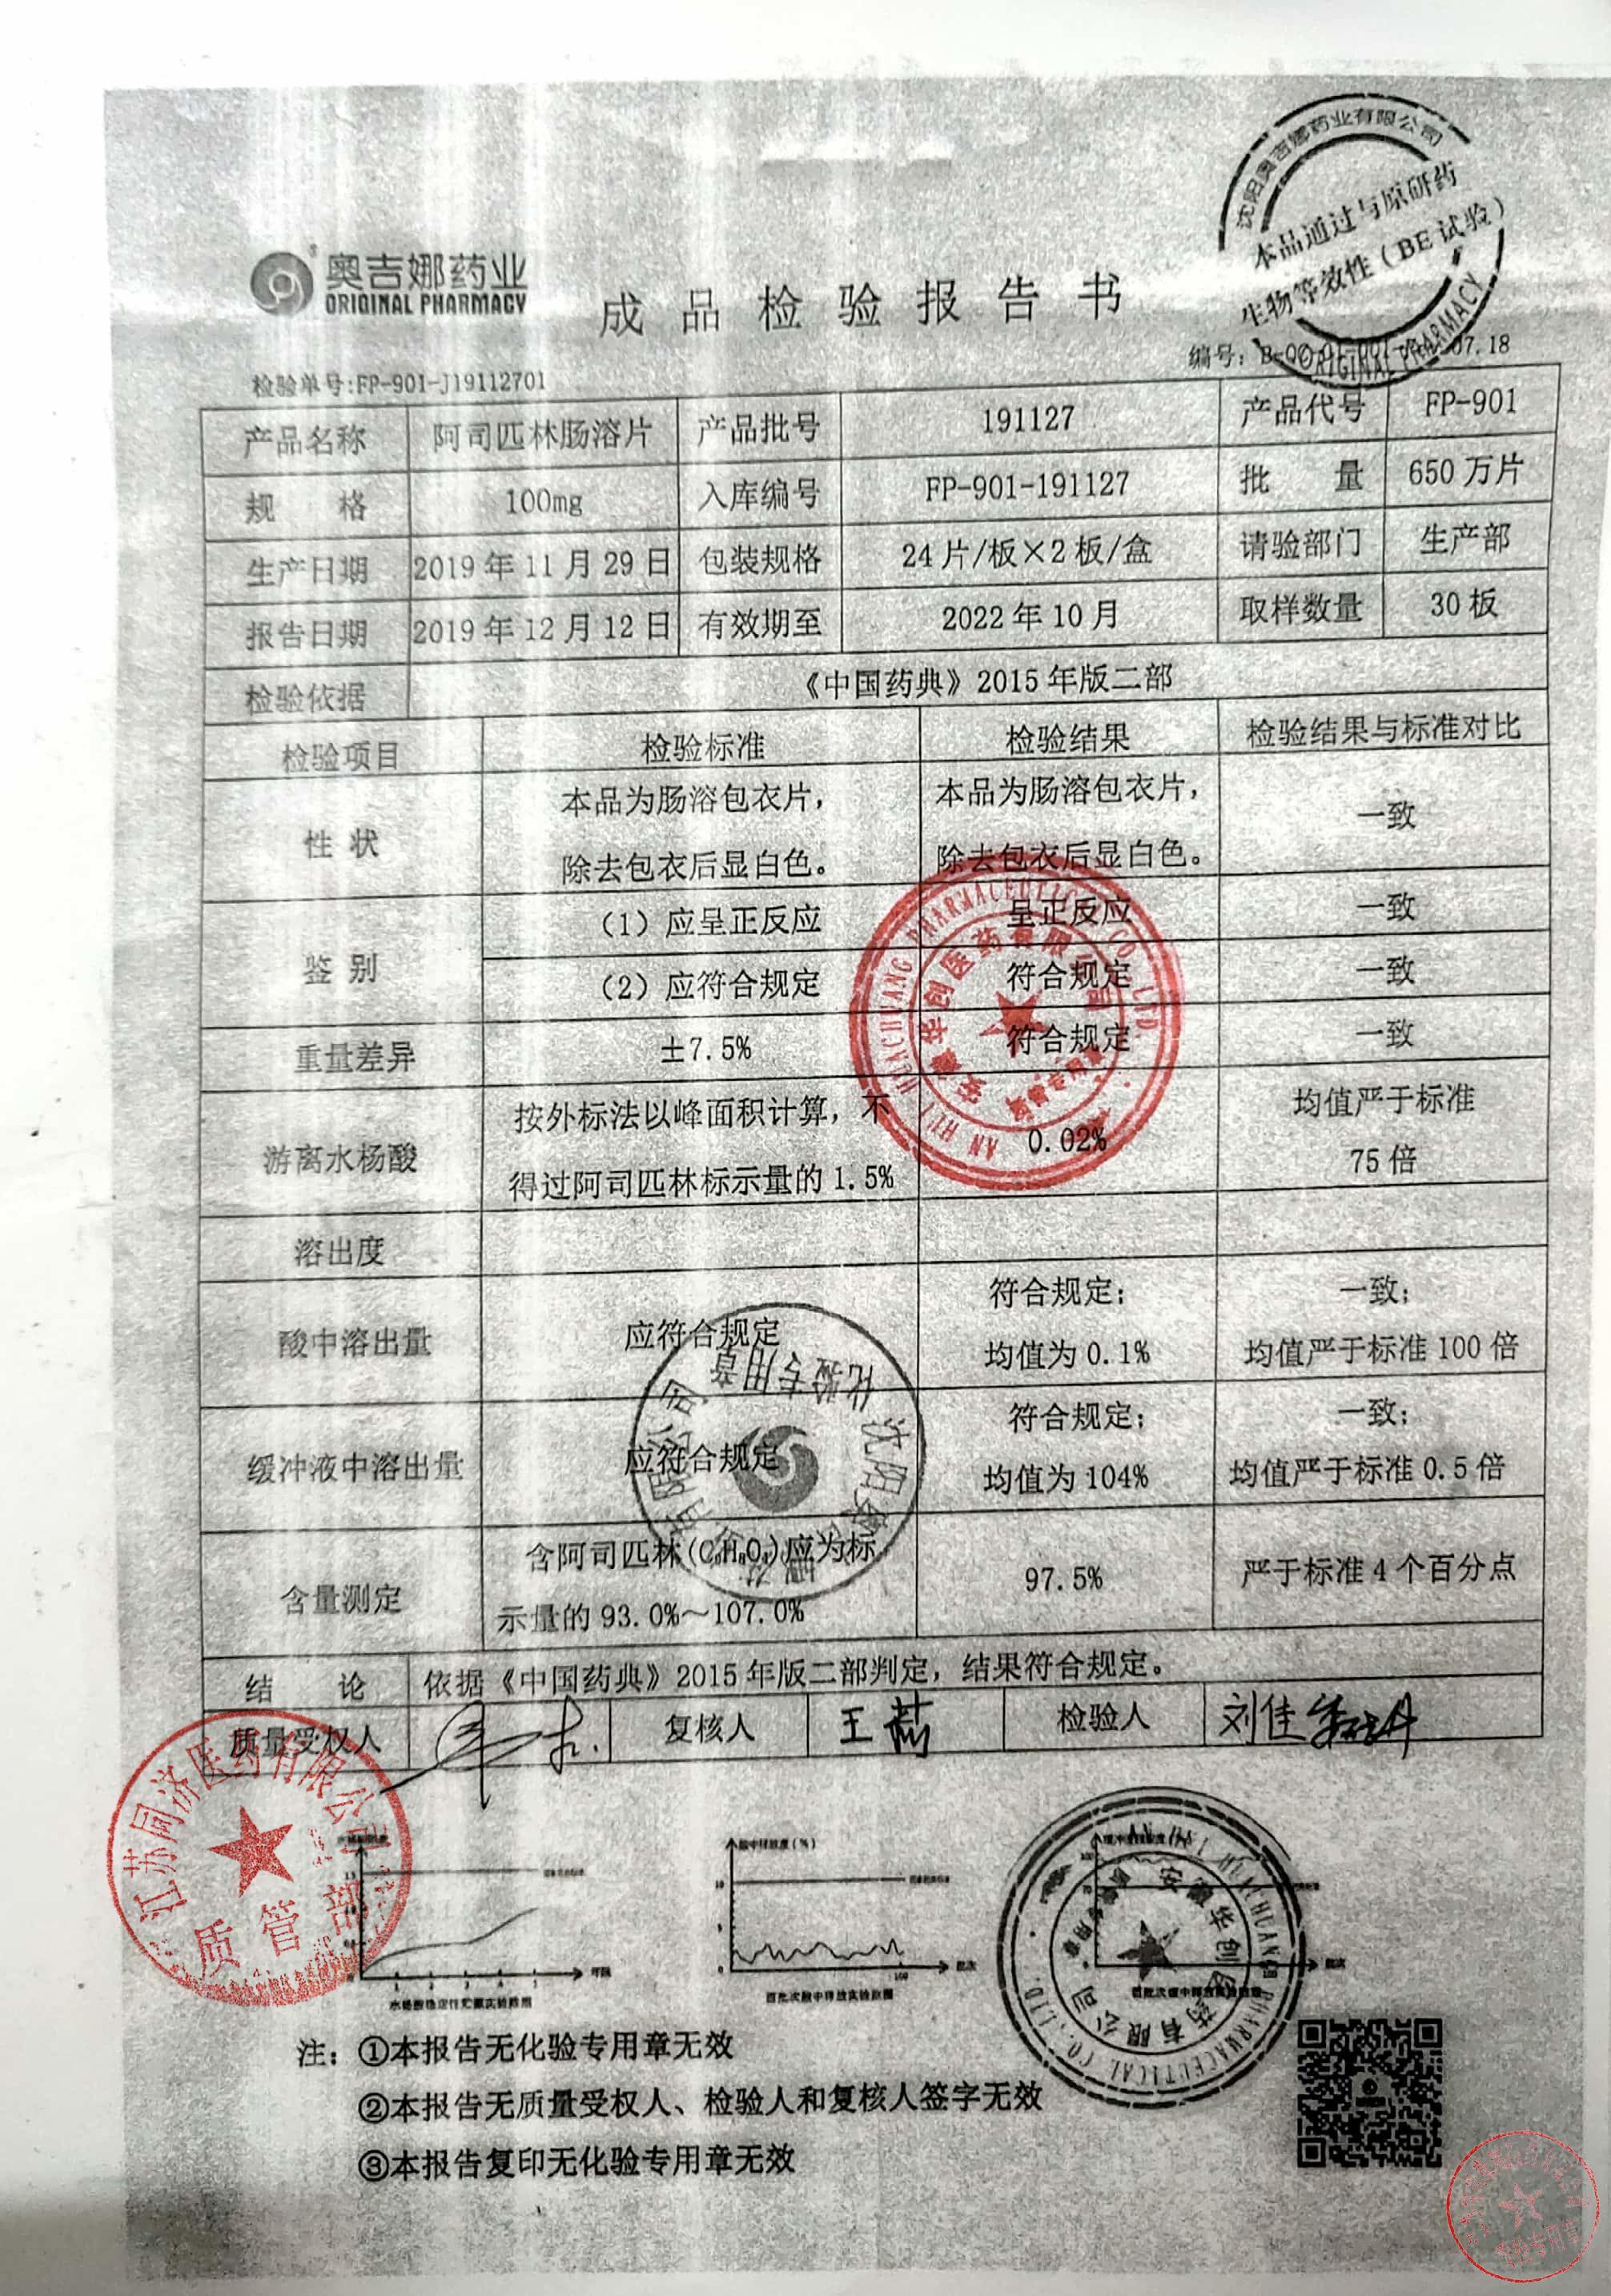 沈阳奥吉娜药业有限公司
本品通过与原研药
生物等效性（BE试验）
ORIGINAL PHARMACY
奥吉娜药业
ORIGINAL PHARMACY
成品检验报告书
检验单号:FP-901-J19112701
编号：
07.18
产品名称 阿司匹林肠溶片 产品批号 191127 产品代号 FP-901
规 格 100mg 入库编号 FP-901-191127 批 量 650万片
生产日期 2019年11月29日 包装规格 24片/板×2板/盒 请验部门 生产部
报告日期 2019年12月12日 有效期至 2022年10月 取样数量 30板
检验依据 《中国药典》2015年版二部
检验项目 检验标准 检验结果 检验结果与标准对比
性 状 本品为肠溶包衣片，除去包衣后显白色。 本品为肠溶包衣片，除去包衣后显白色。 一致
鉴 别 （1）应呈正反应 呈正反应 一致
（2）应符合规定 符合规定 一致
重量差异 ±7.5% 符合规定 一致
游离水杨酸 按外标法以峰面积计算，不得过阿司匹林标示量的1.5% 0.02% 均值严于标准75倍
溶出度
酸中溶出量 应符合规定 符合规定；均值为0.1% 一致；均值严于标准100倍
缓冲液中溶出量 应符合规定 符合规定；均值为104% 一致；均值严于标准0.5倍
含量测定 含阿司匹林(C₉H₈O₄)应为标示量的93.0%～107.0% 97.5% 严于标准4个百分点
结 论 依据《中国药典》2015年版二部判定，结果符合规定。
质量受权人 复核人 王茜 检验人 刘佳
AN HUI HUACHUANG PHARMACEUTICAL CO.,LTD.
安徽华创医药有限公司
化验专用章
江苏同济医药有限公司
质管部
酸中释放度（%）
批次
100
AN HUI HUACHUANG PHARMACEUTICAL CO.,LTD.
安徽华创医药有限公司
注：①本报告无化验专用章无效
②本报告无质量受权人、检验人和复核人签字无效
③本报告复印无化验专用章无效